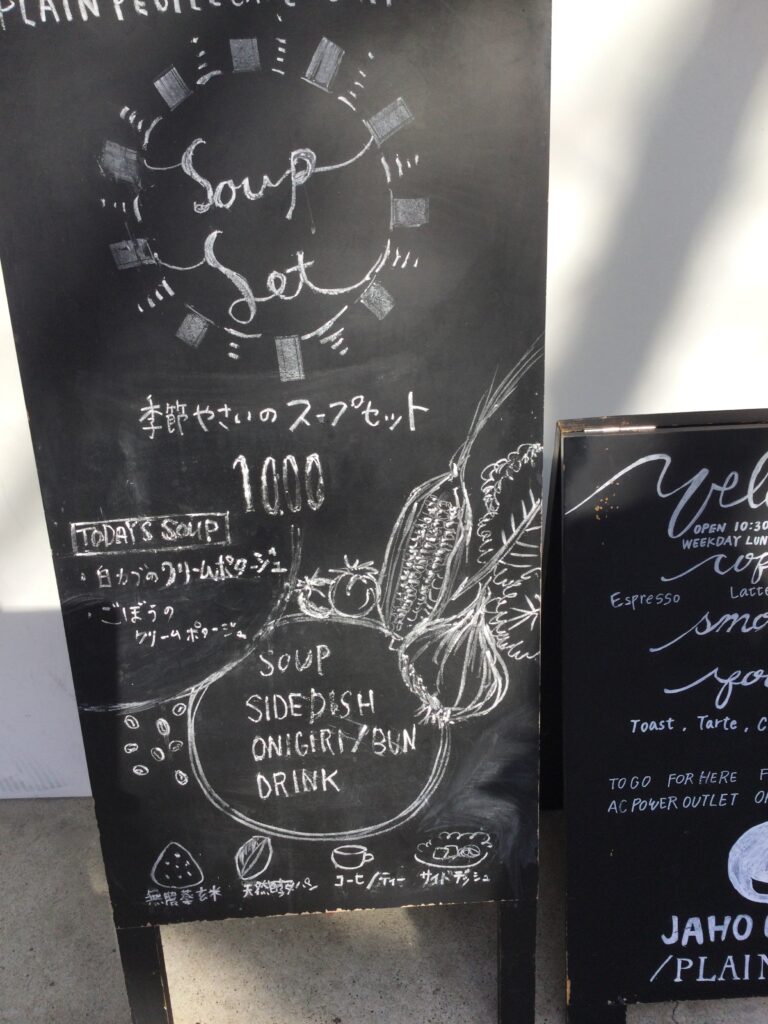 PLAIN PEOPLE
Soup
Set
季節やさいのスープセット
1000
TODAY'S SOUP
・白カブのクリームポタージュ
・ごぼうの
クリームポタージュ
SOUP
SIDEDISH
ONIGIRI/BUN
DRINK
無農薬玄米
天然酵母パン
コーヒ/ティー
サイドデッシュ
OPEN 10:30
WEEKDAY LUN
Espresso Latte
Toast, Tarte, C
TO GO FOR HERE F
AC POWER OUTLET
JAHO
/PLAIN